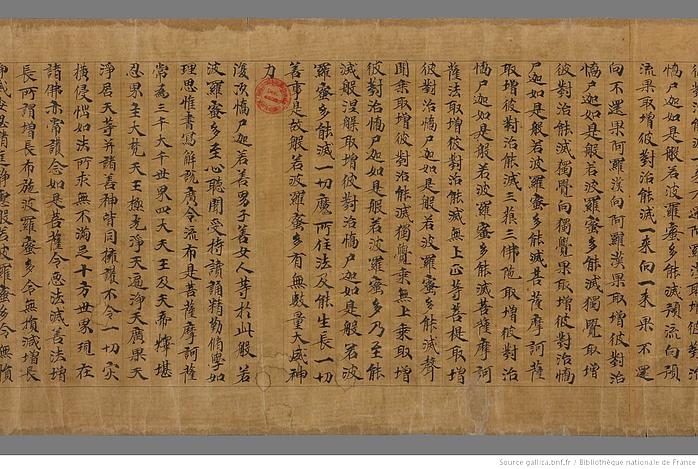 憍尸迦如是般若波羅蜜多能滅預流向預
流果取增彼對治能滅一來向一來果不還
向不還果阿羅漢向阿羅漢果取增彼對治
憍尸迦如是般若波羅蜜多能滅獨覺取增
彼對治能滅獨覺向獨覺果取增彼對治憍
尸迦如是般若波羅蜜多能滅菩薩摩訶薩
取增彼對治能滅三藐三佛陀取增彼對治
憍尸迦如是般若波羅蜜多能滅菩薩摩訶
薩法取增彼對治能滅無上正等菩提取增
彼對治憍尸迦如是般若波羅蜜多能滅聲
聞乘取增彼對治能滅獨覺乘無上乘取增
彼對治憍尸迦如是般若波羅蜜多乃至能
滅般涅槃取增彼對治憍尸迦如是般若波
羅蜜多能滅一切魔所住法及能生長一切
善事是故般若波羅蜜多有無數量大威神
力
復次憍尸迦若善男子善女人等於此般若
波羅蜜多至心聽聞受持讀誦精勤脩學如
理思惟書寫解說廣令流布是菩薩摩訶薩
常為三千大千世界四大天王及天帝釋堪
忍界主大梵天王極光淨天遍淨天廣果天
淨居天等并諸善神皆同擁護不令一切災
橫侵惱如法所求無不滿足十方世界現在
諸佛亦常護念如是菩薩令惡法滅善法增
長所謂增長布施波羅蜜多令無損減增長
Source gallica.bnf.fr / Bibliothèque nationale de France